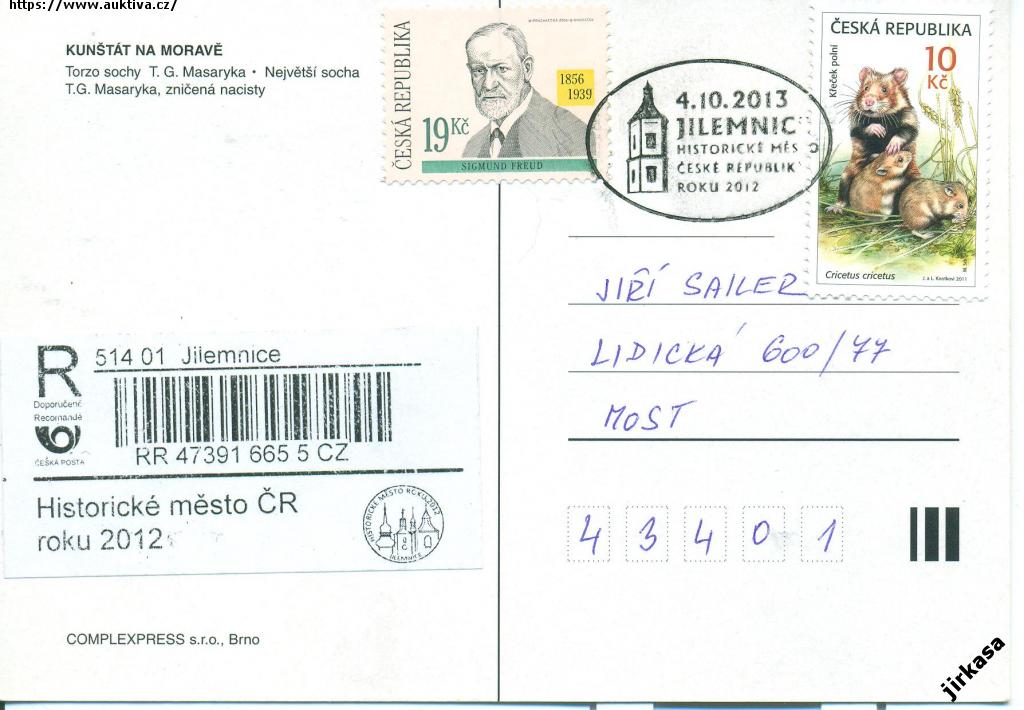 https://www.auktiva.cz/
KUNŠTÁT NA MORAVĚ
Torzo sochy T. G. Masaryka • Největší socha
T.G. Masaryka, zničená nacisty
ČESKÁ REPUBLIKA
1856
1939
19 Kč
SIGMUND FREUD
4.10.2013
JILEMNIC
HISTORICKÉ MĚS O
ČESKÉ REPUBLIK
ROKU 2012
ČESKÁ REPUBLIKA
10
Kč
Křeček polní
Cricetus cricetus
J. a L. Knotkovi 2011
JIŘÍ SAILER
LIDICKÁ 600/77
MOST
43401
R
514 01 Jilemnice
Doporučeně
Recomandé
ČESKÁ POSTA
RR 47391 665 5 CZ
Historické město ČR
roku 2012
HISTORICKÉ MĚSTO ROKU 2012
JILEMNICE
COMPLEXPRESS s.r.o., Brno
jirkasa